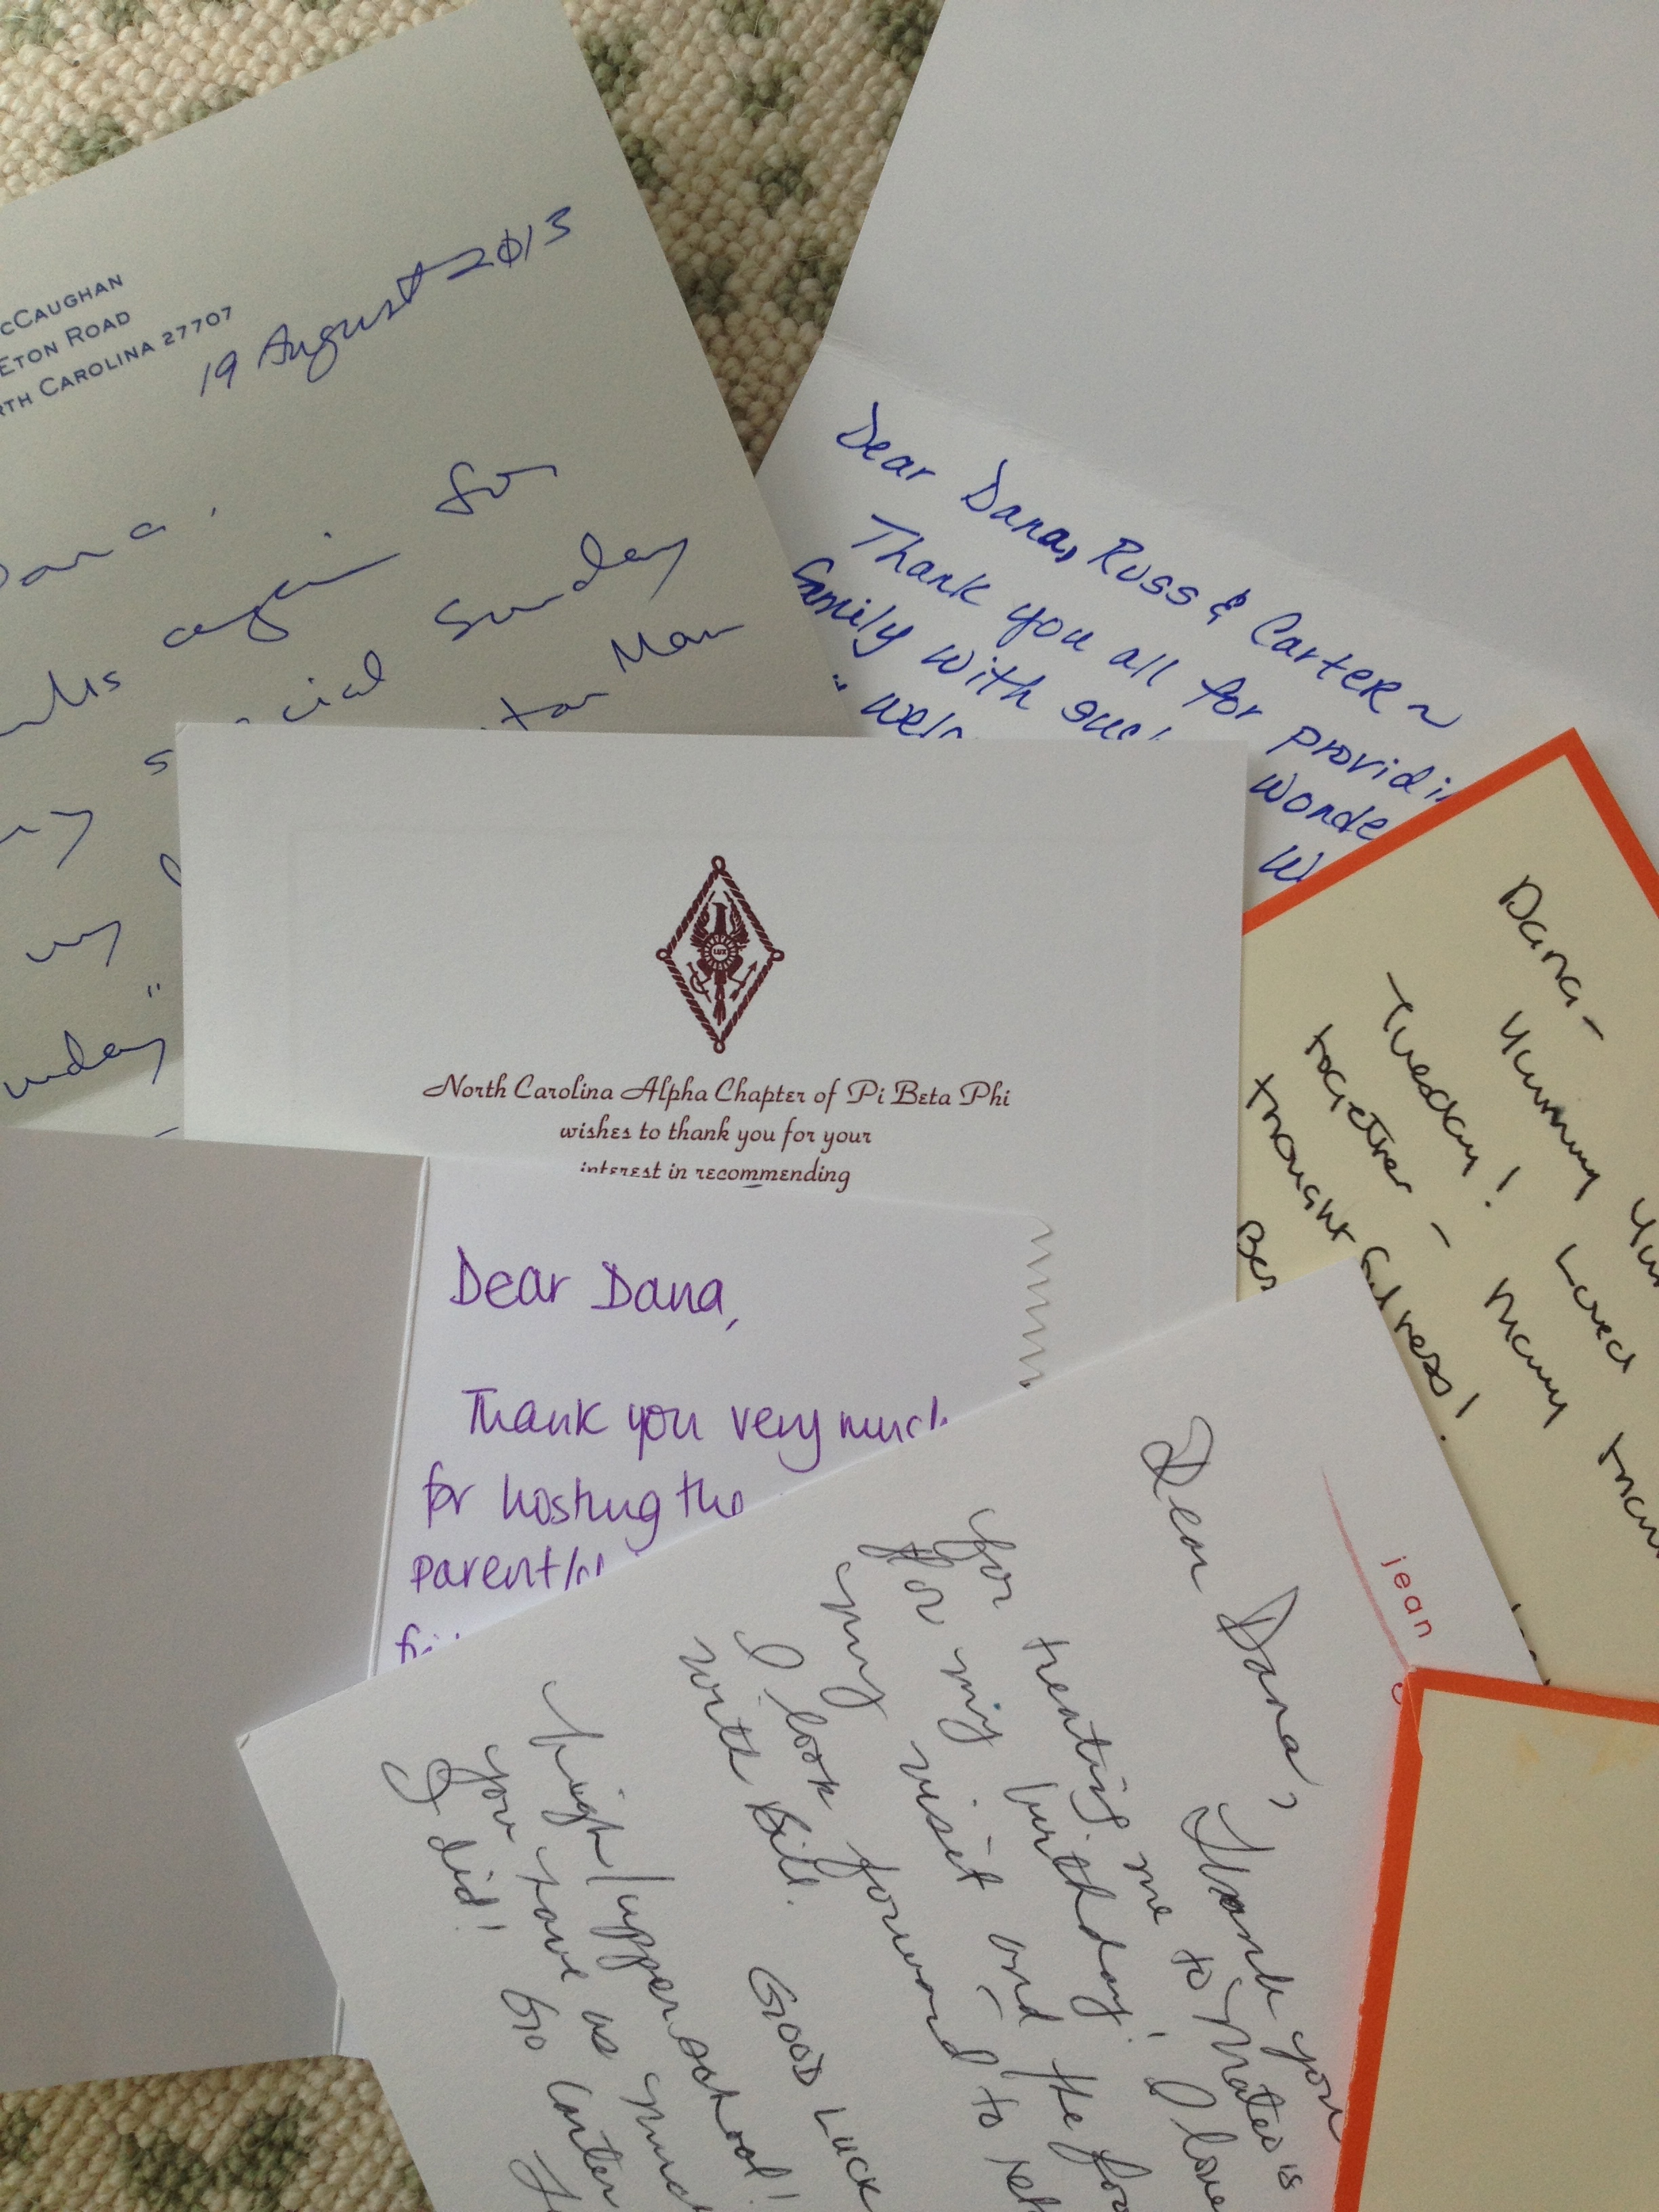 cCAUGHAN
ETON ROAD
RTH CAROLINA 27707
19 August 2013
Dana
again for
special Sunday
Man
unday"
Dear Dana, Russ & Carter ~
Thank you all for providi
family with such wonde
"welc
Dana -
Yummy Yum
Tuesday! Loved
together - Many
thoughtfulness!
LUX
North Carolina Alpha Chapter of Pi Beta Phi
wishes to thank you for your
interest in recommending
Dear Dana,
Thank you very much
for hosting the
parent/
jean
Dear Dana, Thank you
for treating me to Mateo's
for my birthday! I love
my visit and the foo
I look forward to
with Bill.
GOOD LUCK
high/upper school!
you have as much
I did! Go Carter